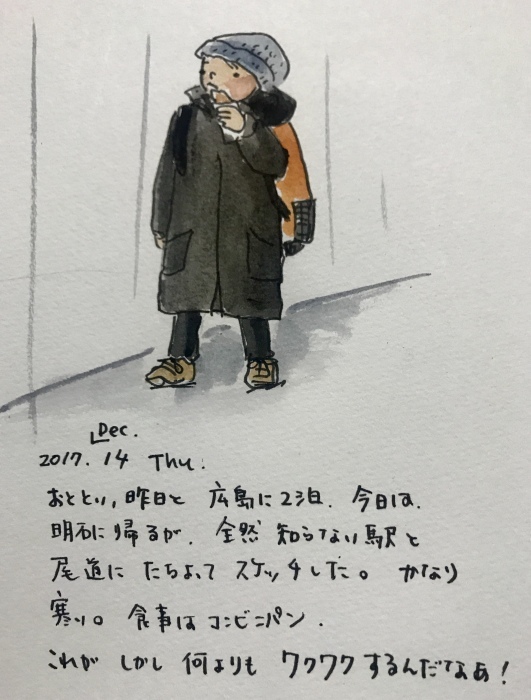 Dec.
2017. 14 Thu.
おととい, 昨日と 広島に2泊. 今日は.
明石に帰るが. 全然 知らない駅と
尾道に たちよって スケッチした。 かなり
寒い。 食事は コンビニパン.
これが しかし 何よりも ワクワク するんだなぁ!